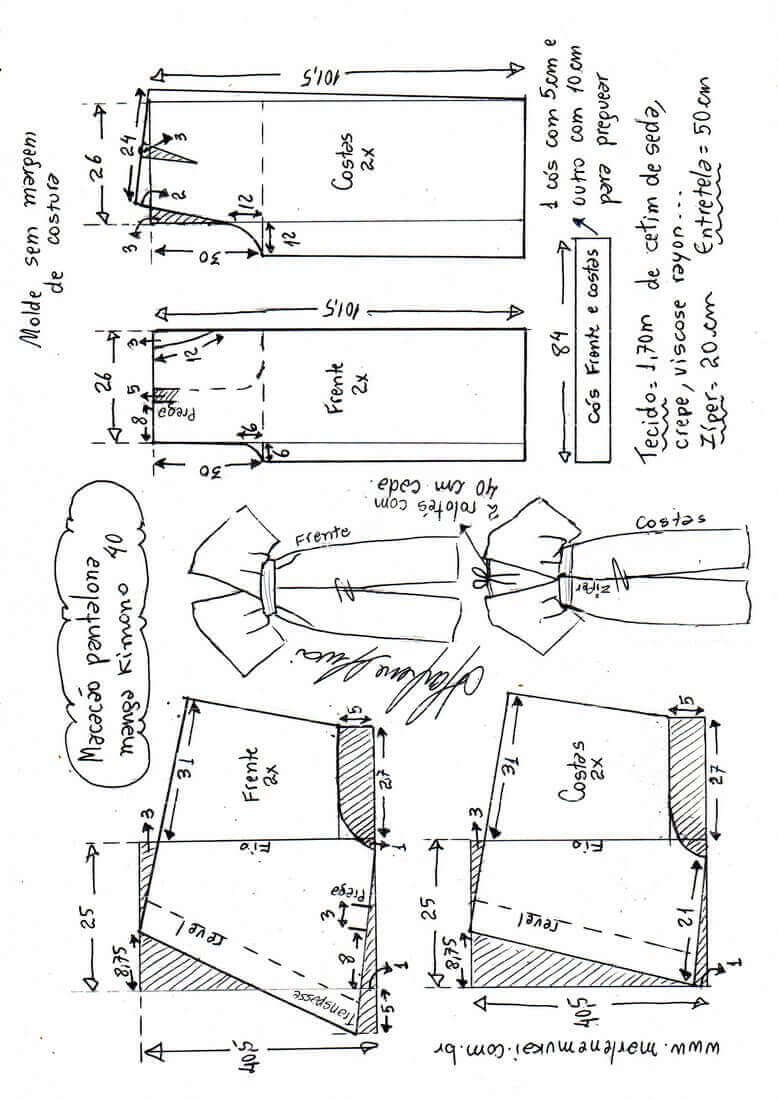 Macacão pantalona
manga Kimono 40
Molde sem margem
de costura
25
8,75
3
31
Frente
2x
Fio
revel
Transpasse
40,5
Prega
3
8
5
1
1
27
5
25
8,75
3
31
Costas
2x
Fio
revel
21
40,5
1
27
5
www.marlenemukai.com.br
Marlene Mukai
Frente
2 rolotês com
40 cm cada.
Costas
Zíper
26
8
5
Prega
3
12
30
6
6
Frente
2x
101,5
26
24
3
2
3
30
12
12
Costas
2x
101,5
84
Cós Frente e costas
1 cós com 5cm e
outro com 10cm
para preguear
Tecido= 1,70m de cetim de seda,
crepe, viscose rayon...
Zíper= 20cm Entretela= 50cm